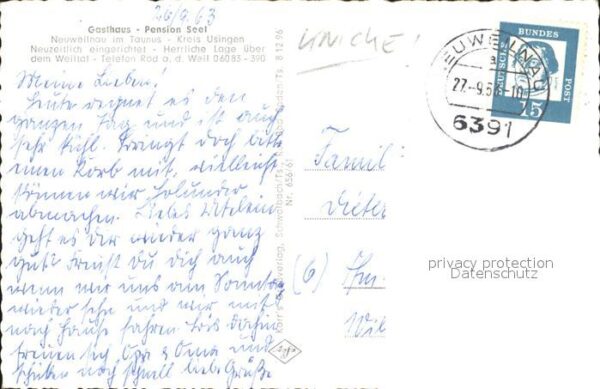 26/9.63
Gasthaus - Pension Seel
Neuweilnau im Taunus - Kreis Usingen
Neuzeitlich eingerichtet - Herrliche Lage über
dem Weiltal - Telefon Rod a. d. Weil 06083-390
Meine Lieben!
Heute regnet es den
ganzen Tag und ist auch
sehr kühl. Bringt doch bitte
einen Korb mit, vielleicht
können wir Holunder
abmachen. Liebes
geht es Dir wieder ganz
gut? Freust du Dich auch
wenn wir uns am Sonntag
wieder sehn und wir mit
nach Hause fahren. Bis dahin
freuen sich, Opa & Oma und
schicken noch schnell liebe Grüße
Ts. 8 12 96
Nr. 656/61
UNICHE!
NEUWEILNAU
a
27.-9.63-10
6391
DEUTSCHE BUNDESPOST
15
Famil
Dieter
(6)
Ffm.
Wil
privacy protection
Datenschutz